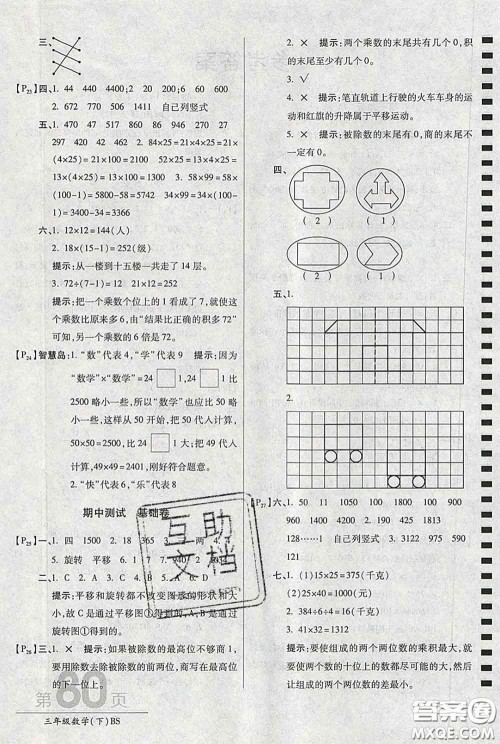 三、
【P23】四、1. 44　440　4400；2. 20　60　600
2. 672　770　516　自己列竖式
五、1. 470　517　860　86　946　270　297
270　432　450　468　2. 84×25＝21×100　21×
(4×25)＝21×100＝2100　52×25＝13×(4×25)＝
13×(4×25)＝13×100＝1300　3. 58×99＝58×
(100－1)＝5800－58＝5742　34×99＝34×
(100－1)＝3400－34＝3366
六、1. 12×12＝144(行)
2. 18×(15－1)＝252(级)
提示：从一楼到十五楼一共走了14层。
3. 72÷(7－1)＝12　12×21＝252
提示：把一个乘数个位上的1看成了7，就使这个
乘数比原来多6，由“结果比正确的积多72”
可知，另一个乘数的6倍是72。
【P24】智慧岛：1. “数”代表4，“学”代表9　提示：因为
“数学”×“数学”＝24□1，24□1比
2500略小一些，所以“数学”也应比50略
小一些，这样从50开始，把50代入计算，
50×50＝2500，比24□1略大。把49代入计
算，49×49＝2401，刚好符合题意。
2. “快”代表6，“乐”代表8
期中测试　基础卷
【P25】一、1. 四　1500　2. 18　15
5. 旋转　平移　6. 1　7. 940
二、1. C　2. B　3. C　4. B　5. A　6. D
提示：平移和旋转都不改变图形的形状和大
小，故C是通过平移图①得到的，A、B是通过
旋转图①得到的。
【P26】三、1. ×　提示：如果被除数的最高位不够商1，就
要用除数去除被除数的前两位，商写在最高位
下一位的上面。
第60页
三年级数学(下)BS
2. ×　提示：两个乘数的末尾共有几个0，积的
末尾至少有几个0。
3. √
4. ×　提示：笔直轨道上行驶的火车车身的运
动和红旗的升降属于平移运动。
5. ×　提示：被除数的末尾有0，商的末尾不一
定有0。
四、
(2)　(1)
(1)　(2)
五、1.
2.
【P27】六、1. 50　11　3000　1815　1400　900
930　60　1250　1000　2. 832　1978　690
128……　自己列竖式
七、1. (1)25×15＝375(千克)
(2)25×10＝250(千克)
2. 384÷6÷4＝16(只)
3. 41×32＝1312
提示：要使组成的两个两位数的乘积最大，就
要使两个数十位上的数都尽可能的大，且使这
两个两位数的差最小。
互助文档
答案圈
MXQE.COM